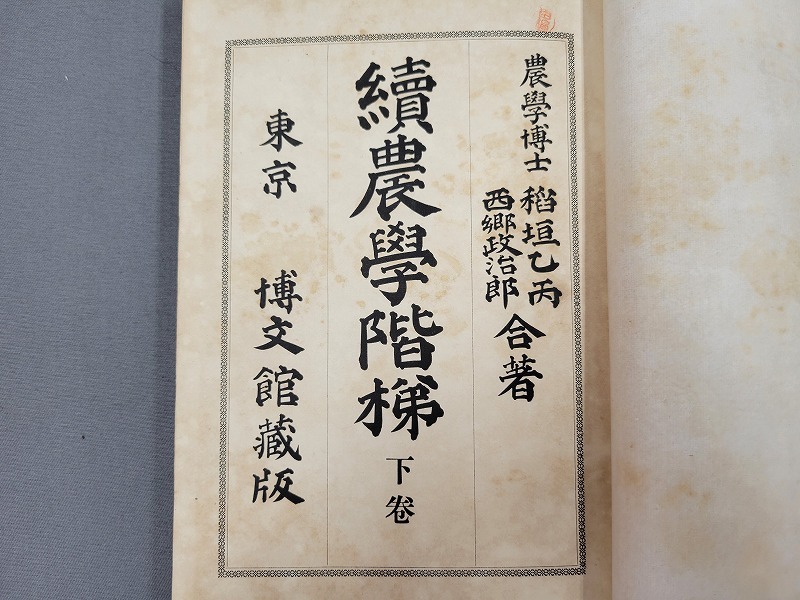 農學博士 稻垣乙丙
西郷政治郎
合著
續農學階梯 下卷
東京 博文館藏版